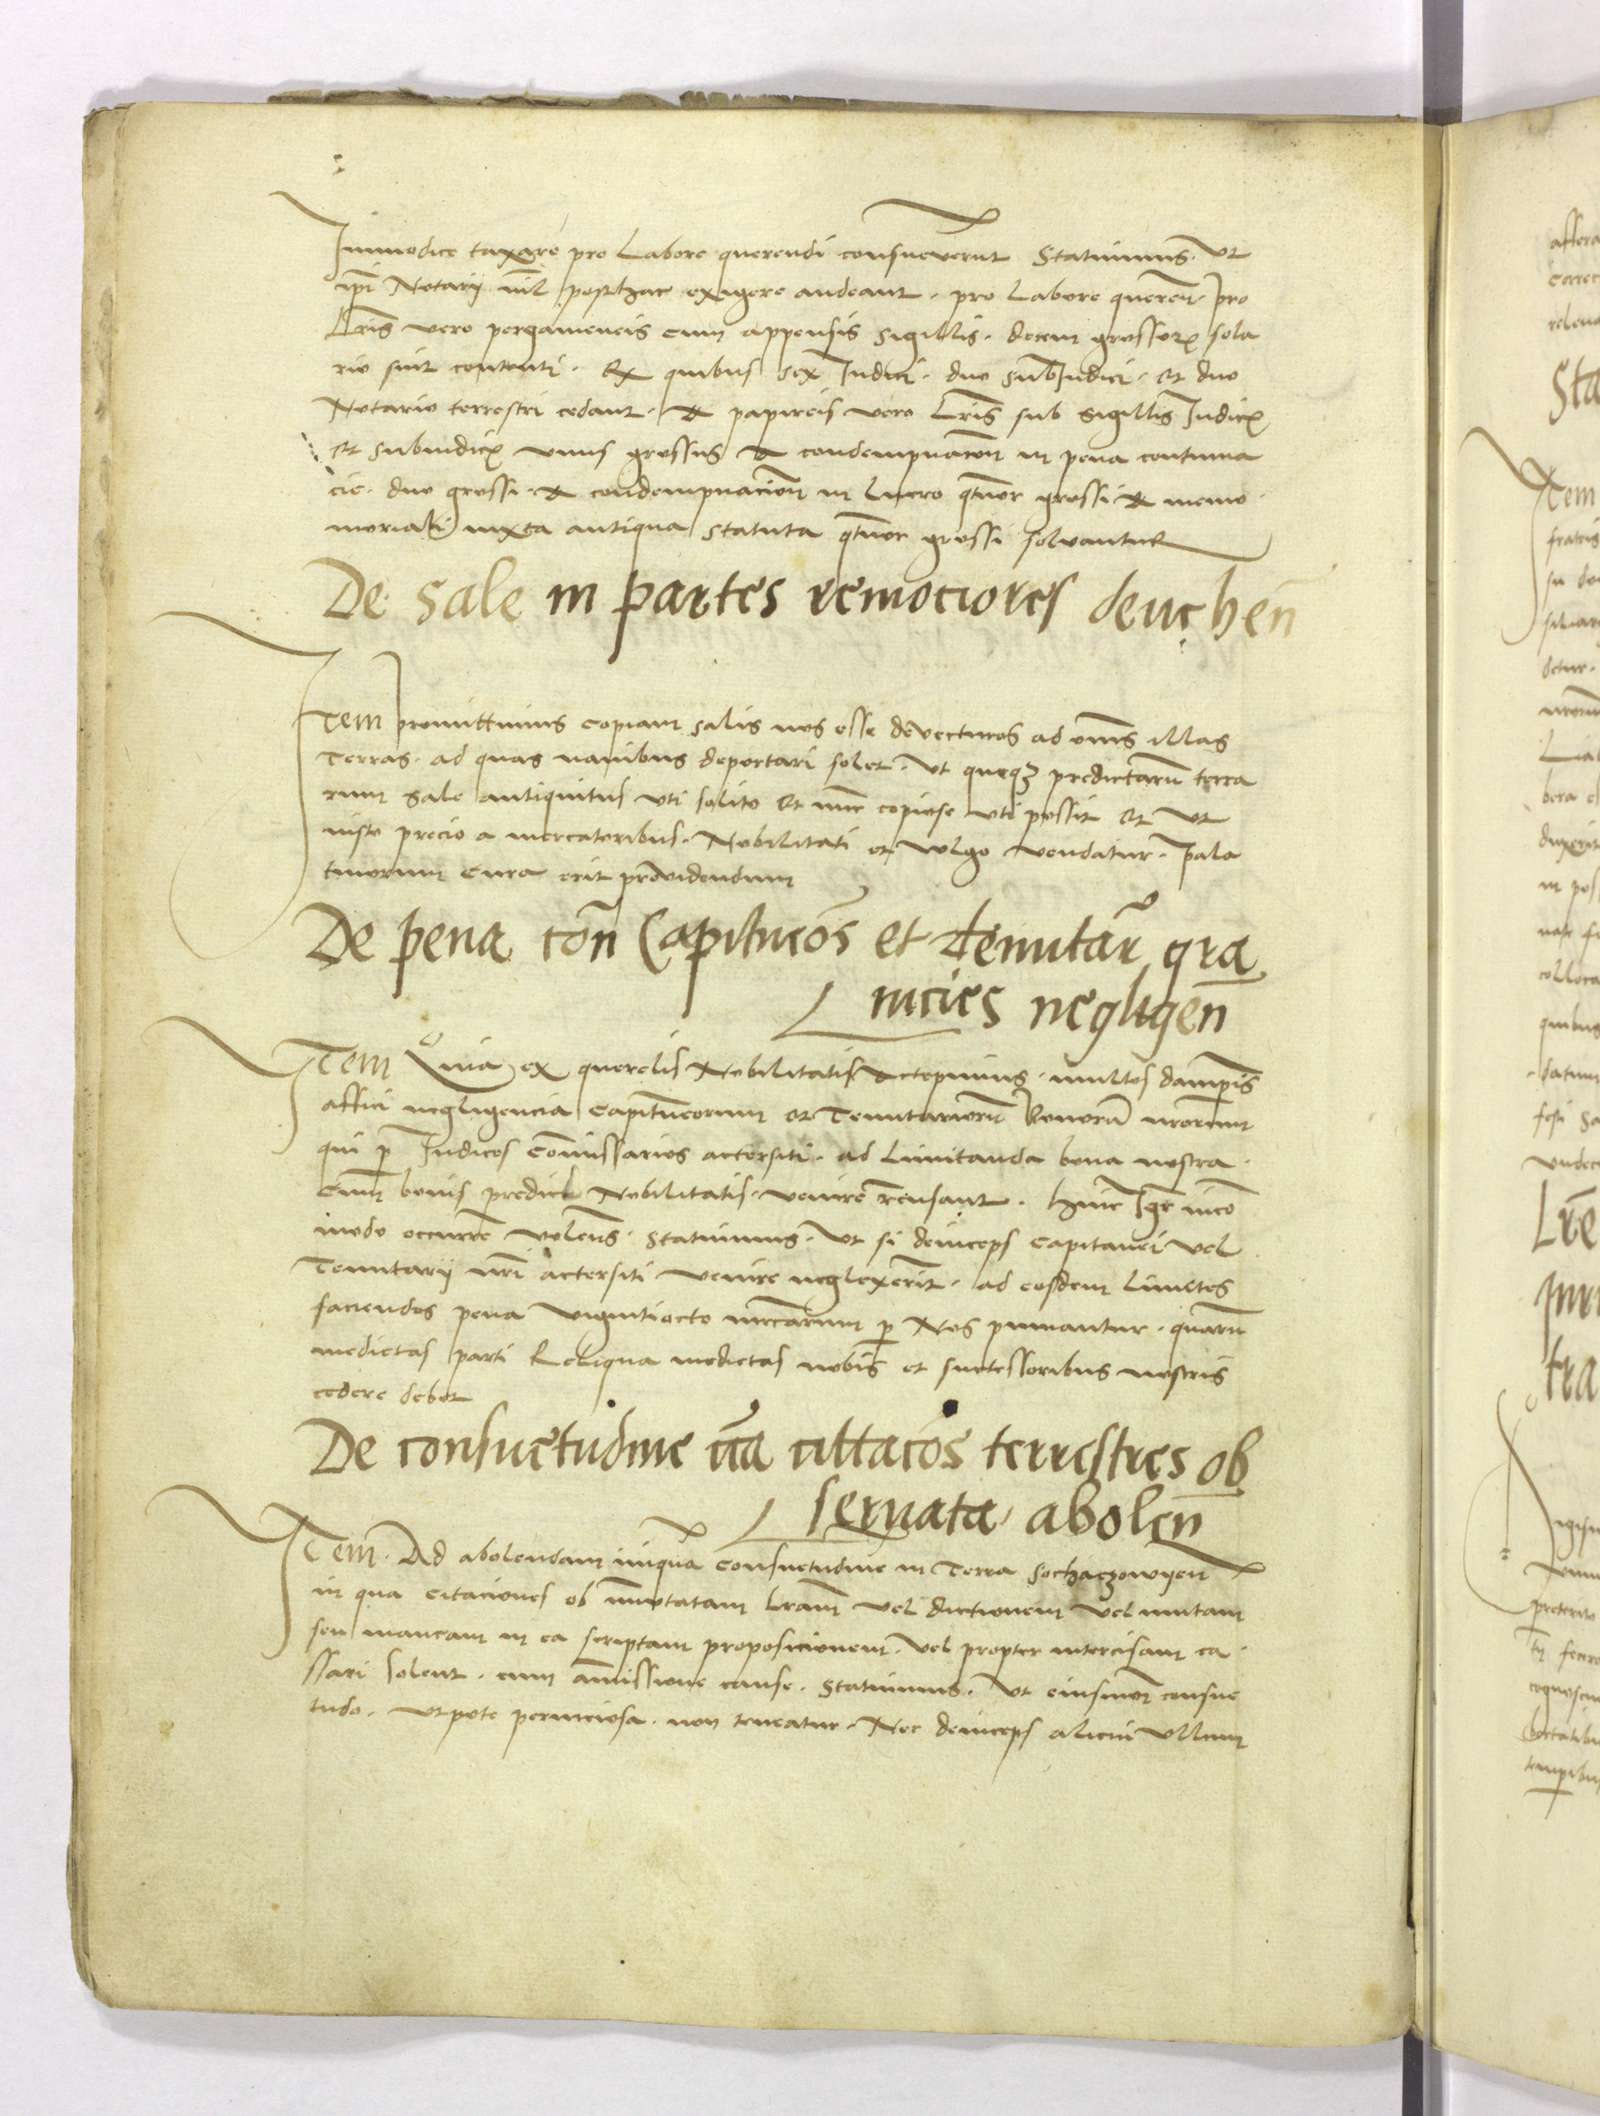 Immodice taxare pro Labore querendi consueverunt Statuimus. Ut
ipi Notarij nil posthac exigere audeant. pro Labore queren. pro
Lris vero pergameneis cum appensis sigillis. decem grossorz sola
rio sint contenti. Ex quibus sex Iudici. duo SubIudici. et duo
Notario terrestri cedant. A papireis vero Lris sub sigillis Iudicz
et subiudicz unus grossus A condempnacon in pena contuma
cie. duo grossi. A condempnacion in lucro qtuor grossi A memo
moriali iuxta antiqua statuta qtuor grossi solvantur
De sale in partes remociores deuehen
Item promittimus copiam salis nos esse devecturos ad omes illas
Terras. ad quas navibus deportari solet. Ut queqz predictarum terra
rum Sale antiquitus uti solito et nunc copiose uti possit et ut
iusto precio a mercatoribus. Nobilitati et vulgo vendatur. pala
tinorum cura erit providendum
De pena con Capitneos et tenutar gra
nicies negligen
Item Quia ex querelis Nobilitatis Accepimus. multos dampnis
affici negligencia Capitneorum et Tenutariorum Bonorum nrorum
qui p Iudices Comissarios accersiti. ad Limitanda bona nostra.
Cum bonis predict Nobilitatis. venire recusant. Huic Igr inco
modo occurre volens. Statuimus. Ut si deinceps Capitanei vel
Tenutarij nri accersiti venire neglexerint. ad eosdem Limites
faciendos pena viginti octo mrcarum p Nos puniantur. quarum
medietas parti Reliqua medietas nobis et successoribus nostris
cedere debet
De consuetudine cca cittacos terrestres ob
seruata abolen
Item. Ad abolendam iniqua consuetudine in Terra Sochaczowien
in qua citaciones ob immutatam lram vel dictionem vel mutam
seu mancam in ea scriptam proposicionem. vel propter intercisam ca.
ssari solent. cum amissione cause. Statuimus. Ut eiusmodi consue
tudo. Utpote perniciosa. non teneatur. Nec deinceps alicui ullum